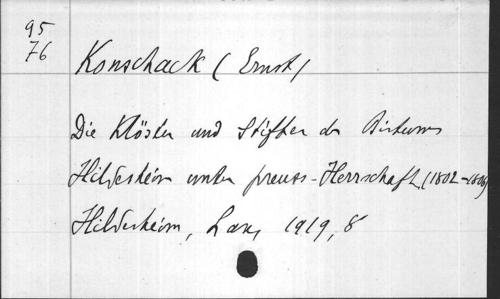 95
76
Konschack (Ernst)
Die Klöster und Stifter des Bistums
Hildesheim unter preuss-Herrschaft (1802-1806)
Hildesheim, Lax, 1919, 8°